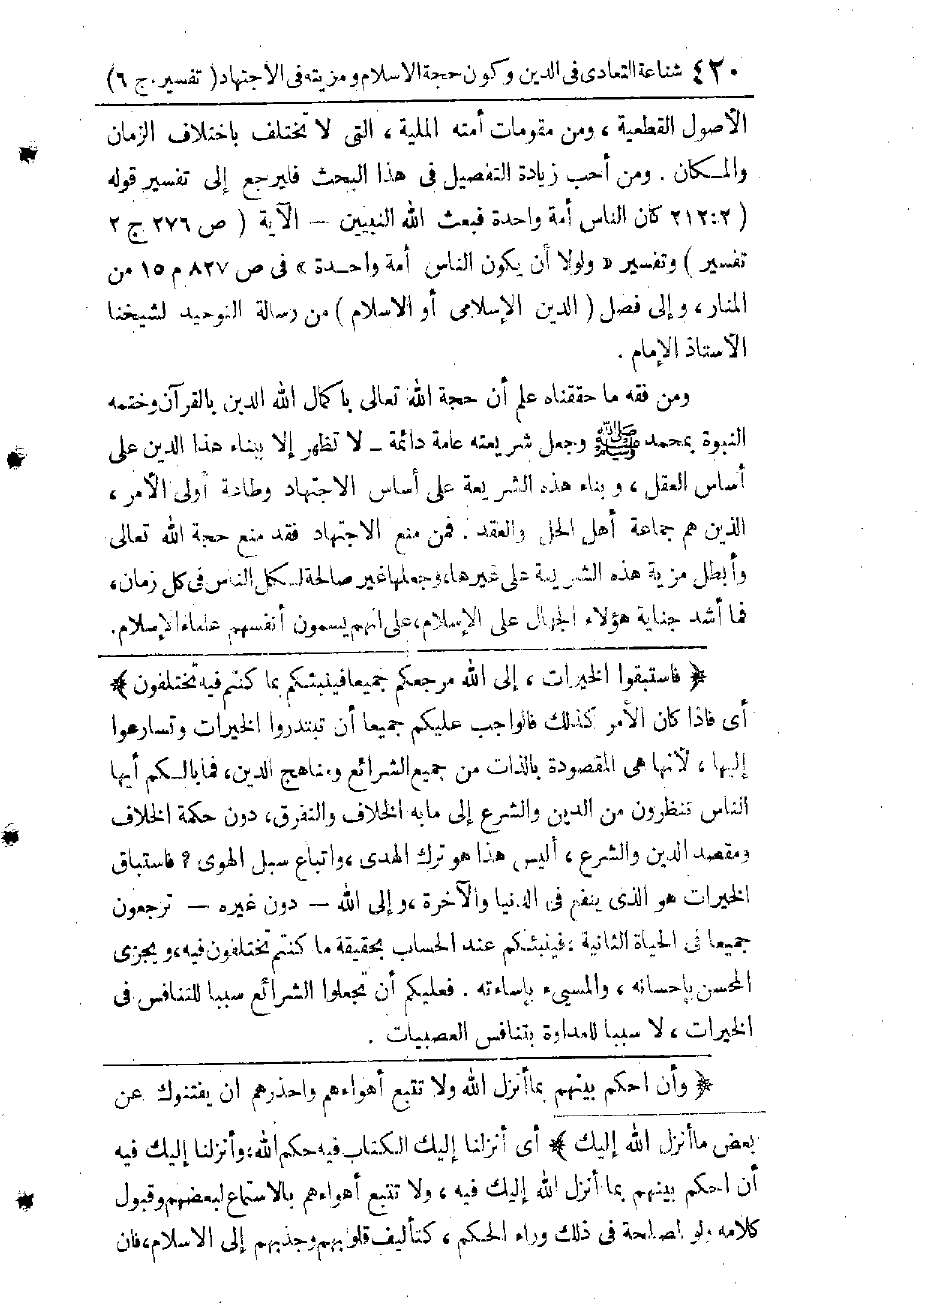 ٤٢٠ شناعة التعادى فى الدين وكون حجة الاسلام ومزيته فى الاجتهاد ( تفسير . ج ٦ )
الأصول القطعية ، ومن مقومات أمته الملية ، التى لا تختلف باختلاف الزمان
والمكان . ومن أحب زيادة التفصيل فى هذا البحث فليرجع إلى تفسير قوله
( ٢١٢:٢ كان الناس أمة واحدة فبعث الله النبيين — الآية ( ص ٢٧٦ ج ٢
تفسير ) وتفسير « ولولا أن يكون الناس أمة واحدة » فى ص ٨٢٧ م ١٥ من
المنار ، وإلى فصل ( الدين الإسلامى أو الاسلام ) من رسالة التوحيد لشيخنا
الأستاذ الإمام .
ومن فقه ما حققناه علم أن حجة الله تعالى باكمال الله الدين بالقرآن وختمه
النبوة بمحمد ﷺ وجعل شريعته عامة دائمة ـ لا تظهر إلا ببناء هذا الدين على
أساس العقل ، وبناء هذه الشريعة على أساس الاجتهاد وطاعة أولى الأمر ،
الذين هم جماعة أهل الحل والعقد . فمن منع الاجتهاد فقد منع حجة الله تعالى
وأبطل مزية هذه الشريعة على غيرها، وجعلها غير صالحة لكل الناس فى كل زمان،
فما أشد جناية هؤلاء الجهال على الإسلام، على انهم يسمون أنفسهم علماء الإسلام.
﴿ فاستبقوا الخيرات ، إلى الله مرجعكم جميعا فينبئكم بما كنتم فيه تختلفون ﴾
أى فاذا كان الأمر كذلك فالواجب عليكم جميعا أن تبتدروا الخيرات وتسارعوا
إليها ، لأنها هى المقصودة بالذات من جميع الشرائع ومناهج الدين، فمابالكم أيها
الناس تنظرون من الدين والشرع إلى مابه الخلاف والتفرق، دون حكمة الخلاف
ومقصد الدين والشرع ، أليس هذا هو ترك الهدى ، واتباع سبل الهوى ؟ فاستباق
الخيرات هو الذى ينفع فى الدنيا والآخرة ، وإلى الله — دون غيره — ترجعون
جميعا فى الحياة الثانية ، فينبئكم عند الحساب بحقيقة ما كنتم تختلفون فيه، ويجزى
المحسن بإحسانه ، والمسىء بإساءته . فعليكم أن تجعلوا الشرائع سببا للتنافس فى
الخيرات ، لا سببا للعداوة بتنافس العصبيات .
﴿ وأن احكم بينهم بما أنزل الله ولا تتبع أهواءهم واحذرهم ان يفتنوك عن
بعض ما أنزل الله إليك ﴾ أى أنزلنا إليك الكتاب فيه حكم الله، وأنزلنا إليك فيه
أن احكم بينهم بما أنزل الله إليك فيه ، ولا تتبع أهواءهم بالاستماع لبعضهم وقبول
كلامه ولو لمصلحة فى ذلك وراء الحكم ، كتأليف قلوبهم وجذبهم إلى الاسلام، فان